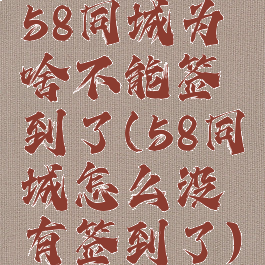 58同城为
啥不能签
到了(58同
城怎么没
有签到了)